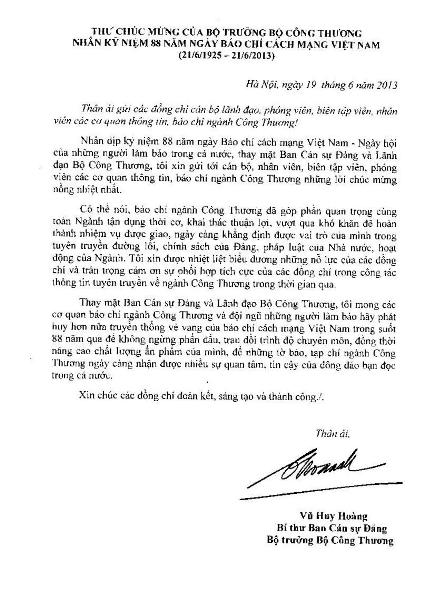 THƯ CHÚC MỪNG CỦA BỘ TRƯỞNG BỘ CÔNG THƯƠNG
NHÂN KỶ NIỆM 88 NĂM NGÀY BÁO CHÍ CÁCH MẠNG VIỆT NAM
(21/6/1925 – 21/6/2013)
Hà Nội, ngày 19 tháng 6 năm 2013
Thân ái gửi các đồng chí cán bộ lãnh đạo, phóng viên, biên tập viên, nhân
viên các cơ quan thông tin, báo chí ngành Công Thương!
Nhân dịp kỷ niệm 88 năm ngày Báo chí cách mạng Việt Nam - Ngày hội
của những người làm báo trong cả nước, thay mặt Ban Cán sự Đảng và Lãnh
đạo Bộ Công Thương, tôi xin gửi tới cán bộ, nhân viên, biên tập viên, phóng
viên các cơ quan thông tin, báo chí ngành Công Thương những lời chúc mừng
nồng nhiệt nhất.
Có thể nói, báo chí ngành Công Thương đã góp phần quan trọng cùng
toàn Ngành tận dụng thời cơ, khai thác thuận lợi, vượt qua khó khăn để hoàn
thành nhiệm vụ được giao, ngày càng khẳng định được vai trò của mình trong
tuyên truyền đường lối, chính sách của Đảng, pháp luật của Nhà nước, hoạt
động của Ngành. Tôi xin được nhiệt liệt biểu dương những nỗ lực của các đồng
chí và trân trọng cám ơn sự phối hợp tích cực của các đồng chí trong công tác
thông tin tuyên truyền về ngành Công Thương trong thời gian qua.
Thay mặt Ban Cán sự Đảng và Lãnh đạo Bộ Công Thương, tôi mong các
cơ quan báo chí ngành Công Thương và đội ngũ những người làm báo hãy phát
huy hơn nữa truyền thống vẻ vang của báo chí cách mạng Việt Nam trong suốt
88 năm qua để không ngừng phấn đấu, trau dồi trình độ chuyên môn, đồng thời
nâng cao chất lượng ấn phẩm của mình, để những tờ báo, tạp chí ngành Công
Thương ngày càng nhận được nhiều sự quan tâm, tin cậy của đông đảo bạn đọc
trong cả nước.
Xin chúc các đồng chí đoàn kết, sáng tạo và thành công./.
Thân ái,
Vũ Huy Hoàng
Bí thư Ban Cán sự Đảng
Bộ trưởng Bộ Công Thương